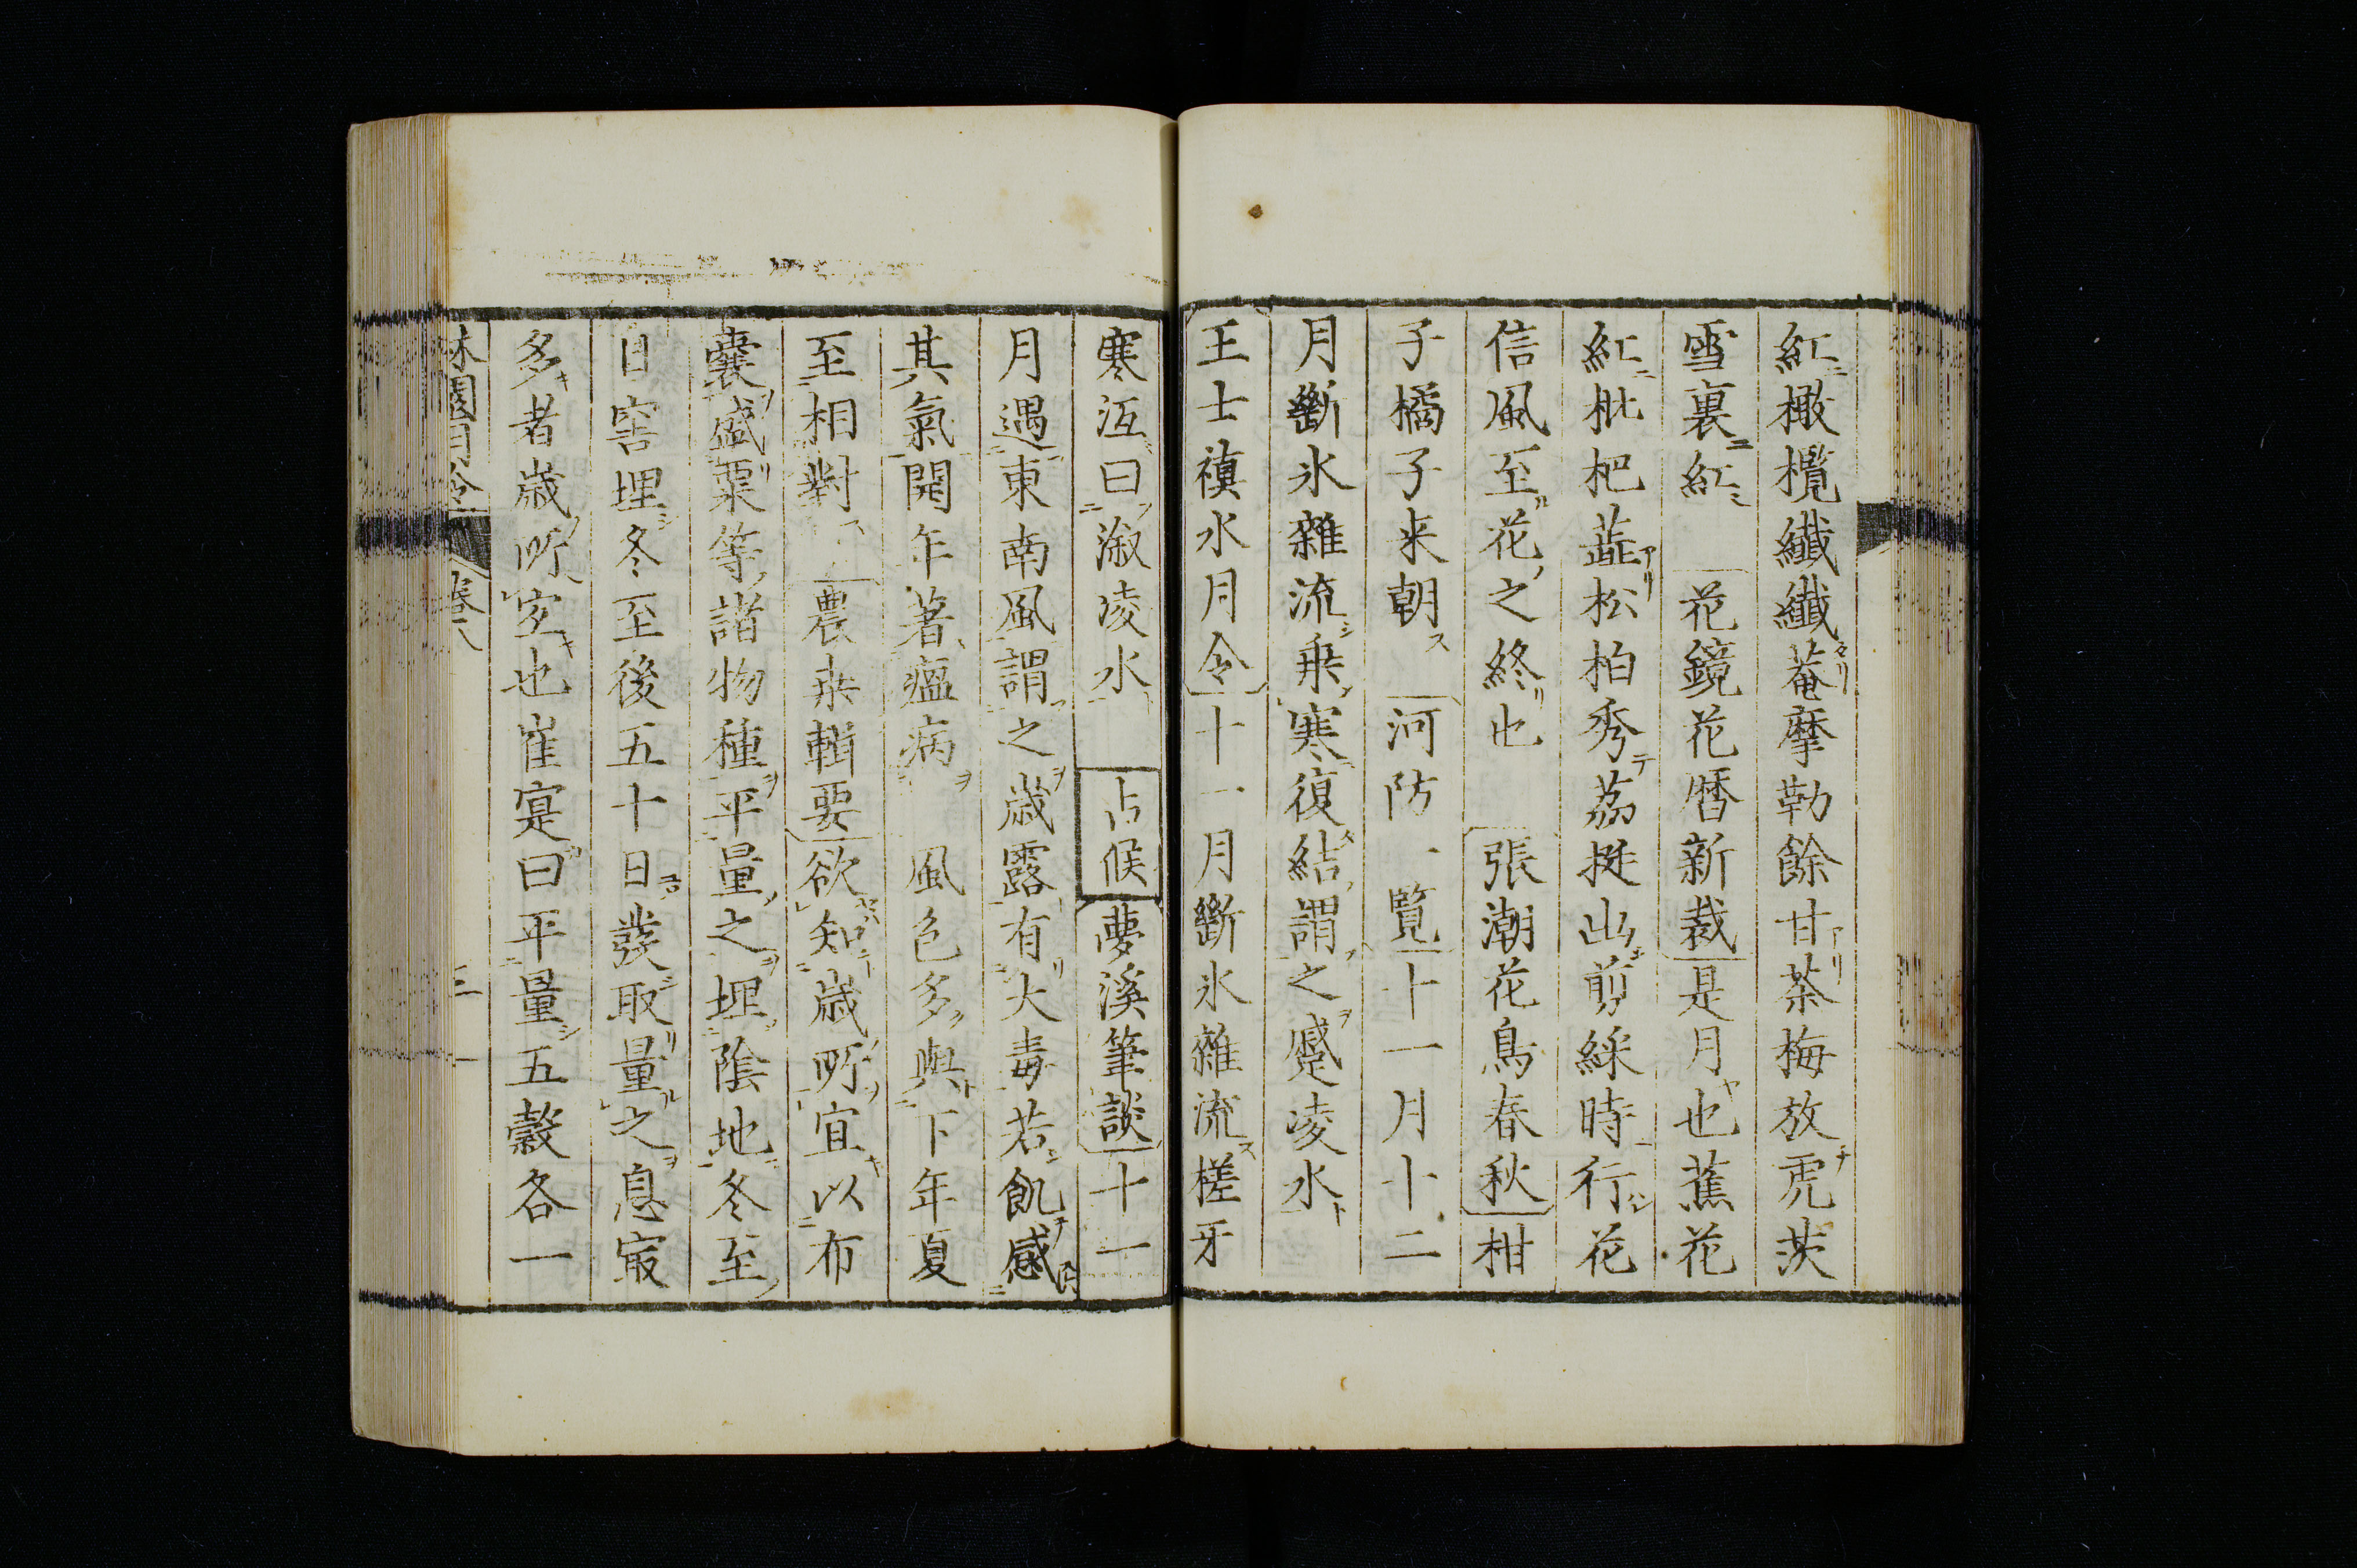 紅橄欖纖纖菴摩勒餘甘茶梅放虎茨
雪裏紅　花鏡花暦新裁是月也蕉花
紅枇杷蘂松柏秀茘挺出剪綵時行花
信風至花之終也　張潮花鳥春秋柑
子橘子来朝　河防一覧十一月十二
月斷氷雜流乗寒復結謂之蹙凌水
王士禛水月令十一月斷氷雜流槎牙
寒沍曰漵凌水　占候夢溪筆談十一
月遇東南風謂之歳露有大毒若飢感
其氣開年著瘟病　風色多與下年夏
至相對　農桒輯要欲知歳所宜以布
囊盛粟等諸物種平量之埋陰地冬至
日窖埋冬至後五十日發取量之息㝡
多者歳所宜也崔寔曰平量五糓各一
林園月令　卷八